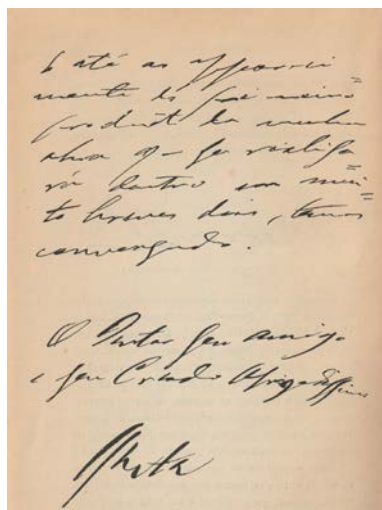 e até ao apparecimento
mento do primeiro
producto da minha
obra q se realisa
rá dentro em mui
to breves dias, temos
conversado.
O Doutor Seu amigo
e Seu Criado Obrigadissimo